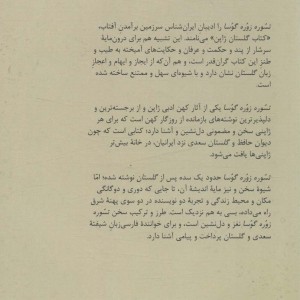 تسوره زوره گوسا را ادیبان ایران‌شناس سرزمین برآمدن آفتاب،
«کتاب گلستان ژاپن» می‌نامند. این تشبیه هم برای درون‌مایهٔ
سرشار از پند و حکمت و عرفان و حکایت‌های آمیخته به طیب و
طنز این کتاب گران‌قدر است، و هم آن‌که از ایجاز و ایهام و اعجاز
زبان گلستان نشان دارد و با شیوه‌ای سهل و ممتنع ساخته شده
است.
تسوره زوره گوسا یکی از آثار کهن ادبی ژاپن و از برجسته‌ترین و
دلپذیرترین نوشته‌های بازمانده از روزگار کهن است که برای هر
ژاپنی سخن و مضمونی دل‌نشین و آشنا دارد؛ کتابی است که چون
دیوان حافظ و گلستان سعدی نزد ایرانیان، در خانهٔ بیش‌تر
ژاپنی‌ها یافت می‌شود.
تسوره زوره گوسا حدود یک سده پس از گلستان نوشته شده؛ امّا
شیوهٔ سخن و نیز مایهٔ اندیشهٔ آن، تا جایی که دوری و دوگانگی
مکان و محیط زندگی و تجربهٔ دو نویسنده در دو سوی پهنهٔ شرق
راه می‌داده، بسی به هم نزدیک است. طرز و ترکیب سخن تسوره
زوره گوسا نغز و دل‌نشین است، و برای خوانندهٔ فارسی‌زبانِ شیفتهٔ
سعدی و گلستان پرداخت و پیامی آشنا دارد.